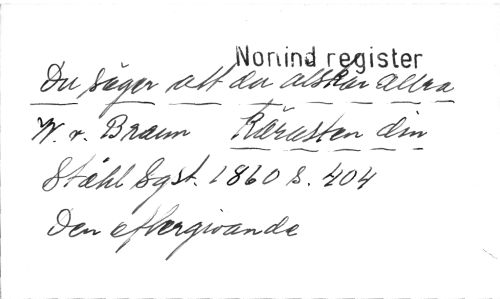 Nonind register
Du säger att du älskar allra
W. v. Braun Käraste din
Ståhl Sgst. 1860 S. 404
Den eftergivande